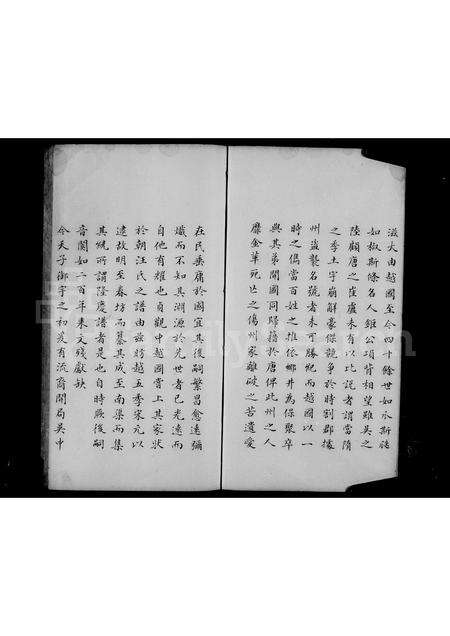 滋大由越國至今四十餘世如水斯話
如椒斯條名人鉅公項背相望雖吳之
陸顧唐之崔盧未有以比說者謂當隋
之季土宇崩解豪傑競爭於時割郡據
州盜襲名號者未可勝紀而越國以一
時之儁當百姓之推依鄉井為保聚卒
與其弟開國同歸籍於唐俾此州之人
靡金革死亡之傷州家離破之苦遺愛
在民桑庸於國宜其後嗣繁昌愈遠彌
熾而不知其淵源於先世者已光遠而
自他有耀也貞觀中越國嘗上其家狀
於朝汪氏之譜由茲昉越五季宋元以
逮故明至春坊而纂其成至南渠而集
其統所謂隆慶譜者是也自時厥後嗣
音闃如二百年來文殘獻缺
今天子御宇之初爰有流裔開局吳中